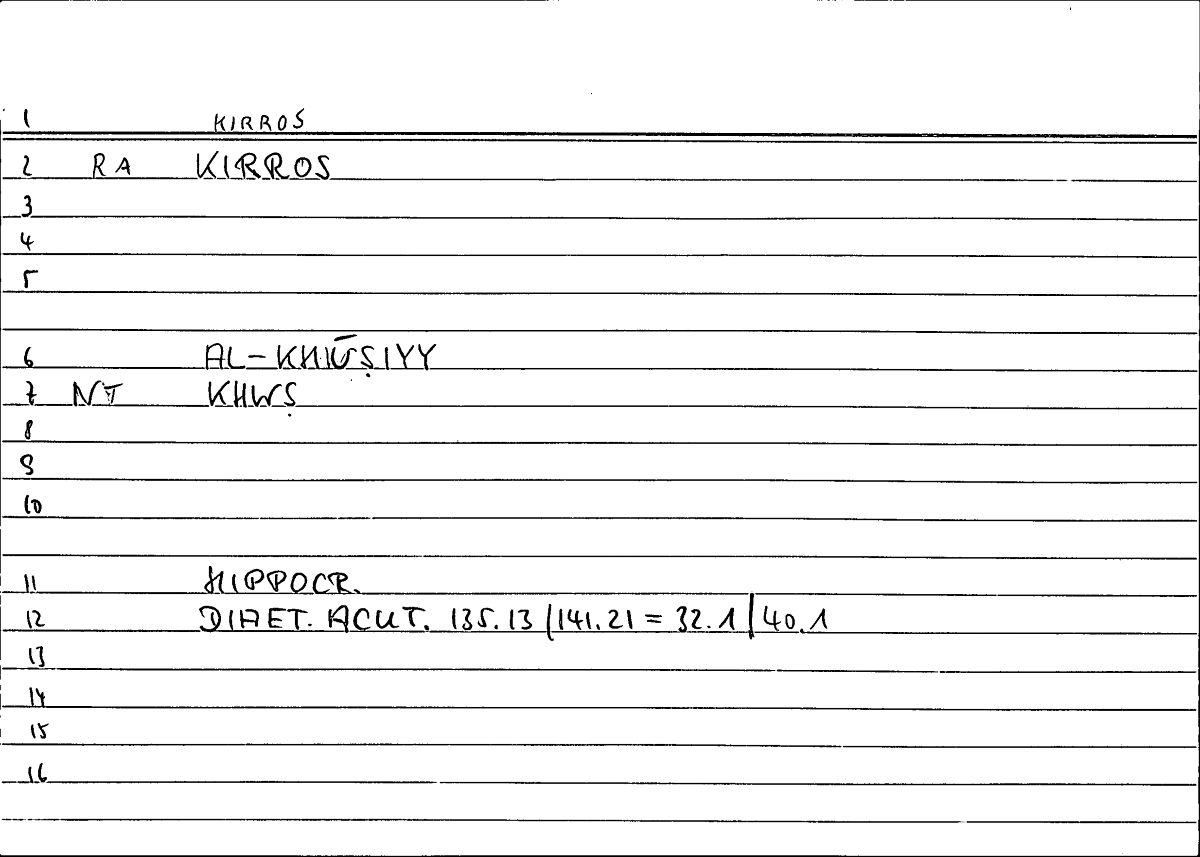 1 KIRROS
2 RA KIRROS
3
4
5
6 AL-KHŪṢIYY
7 NT KHWṢ
8
9
10
11 HIPPOCR.
12 DIAET. ACUT. 135.13/141.21 = 32.1/40.1
13
14
15
16